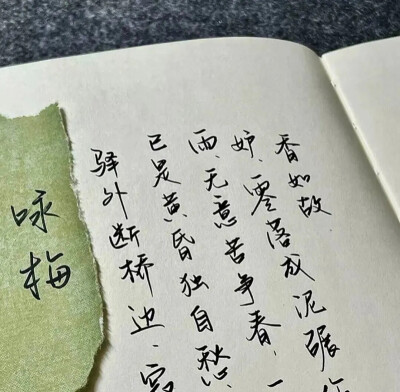 咏梅
驿外断桥边，
已是黄昏独自愁
雨，无意苦争春，一
妒，零落成泥碾
香如故